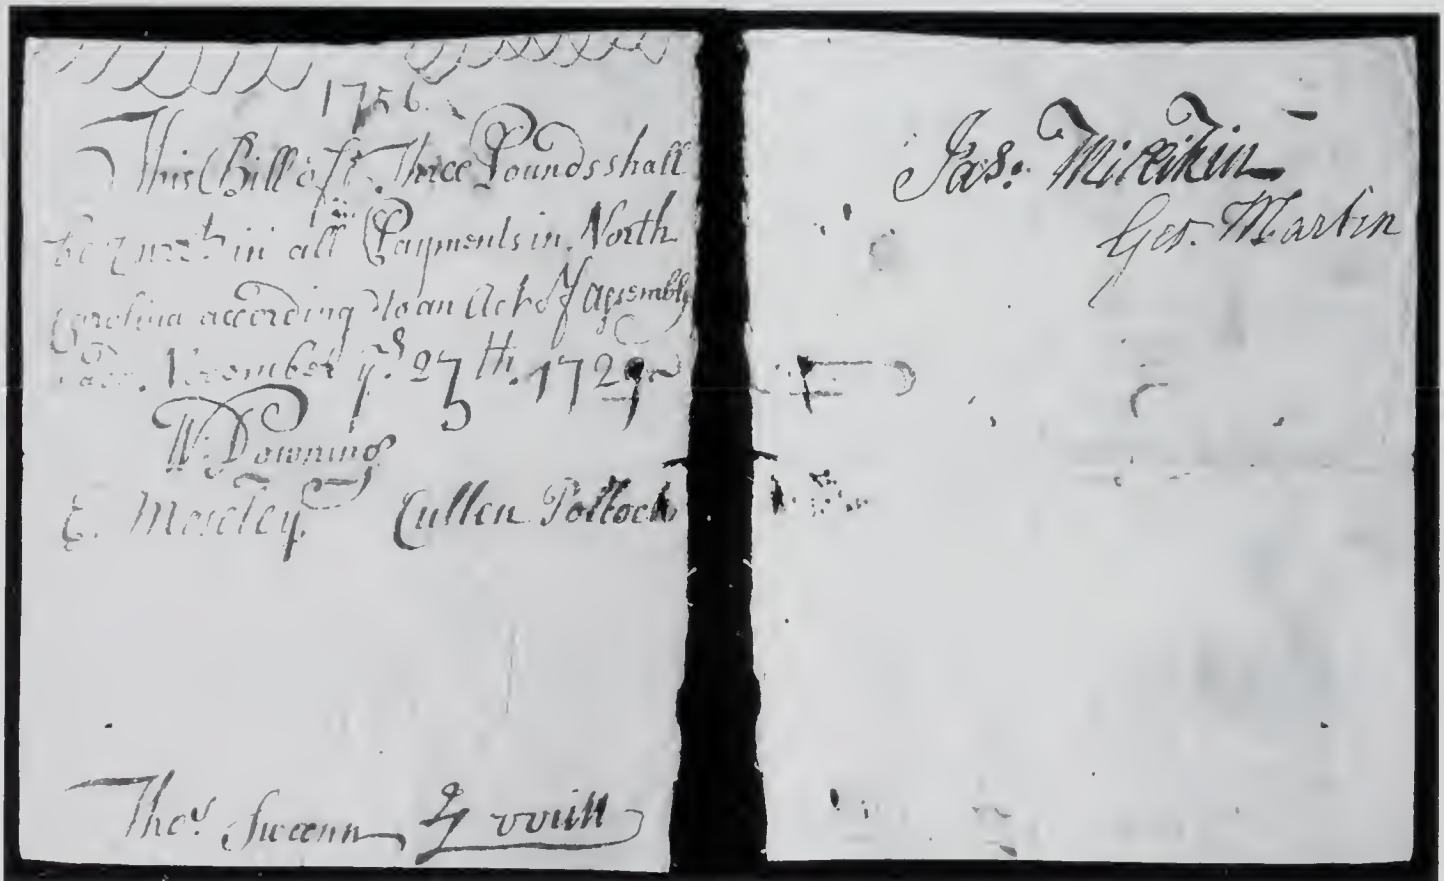 1756
This Bill of Three Pounds shall
be in all Payments in North
Carolina according to an Act of Assembly
November yͤ 27th. 1729
W. Downing
E. Moseley. Cullen Pollock
Thoˢ Swann
Jas. Millikin
Geo. Martin